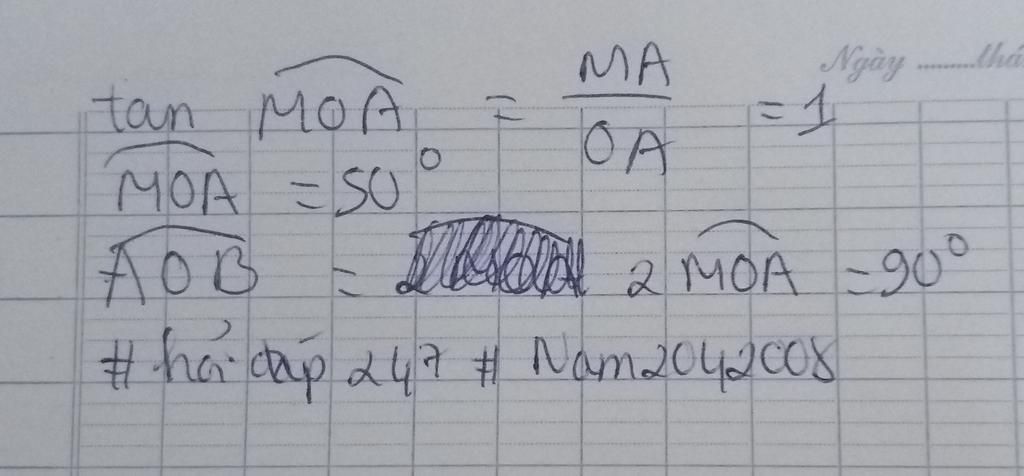 Ngày .........thá
tan MOA = MA / OA = 1
MOA = 50°
AOB = 2 MOA = 90°
# hỏi đáp 247 # Nam2042008